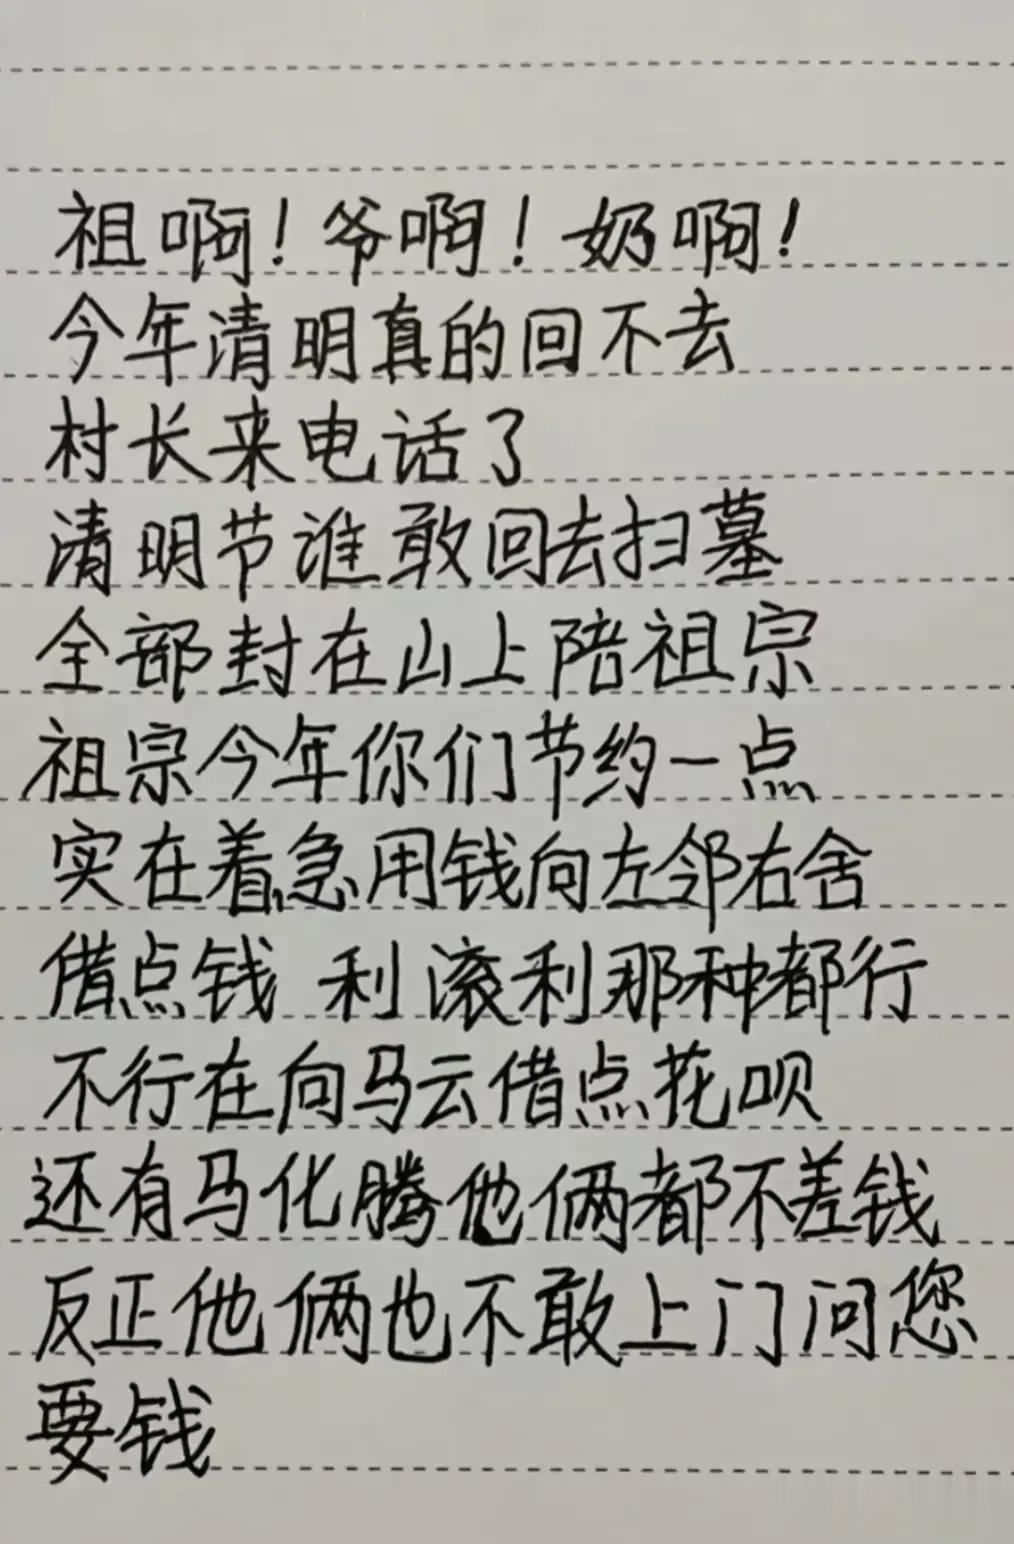 祖啊！爷啊！奶啊！
今年清明真的回不去
村长来电话了
清明节谁敢回去扫墓
全部封在山上陪祖宗
祖宗今年你们节约一点
实在着急用钱向左邻右舍
借点钱 利滚利那种都行
不行在向马云借点花呗
还有马化腾他俩都不差钱
反正他俩也不敢上门问您
要钱